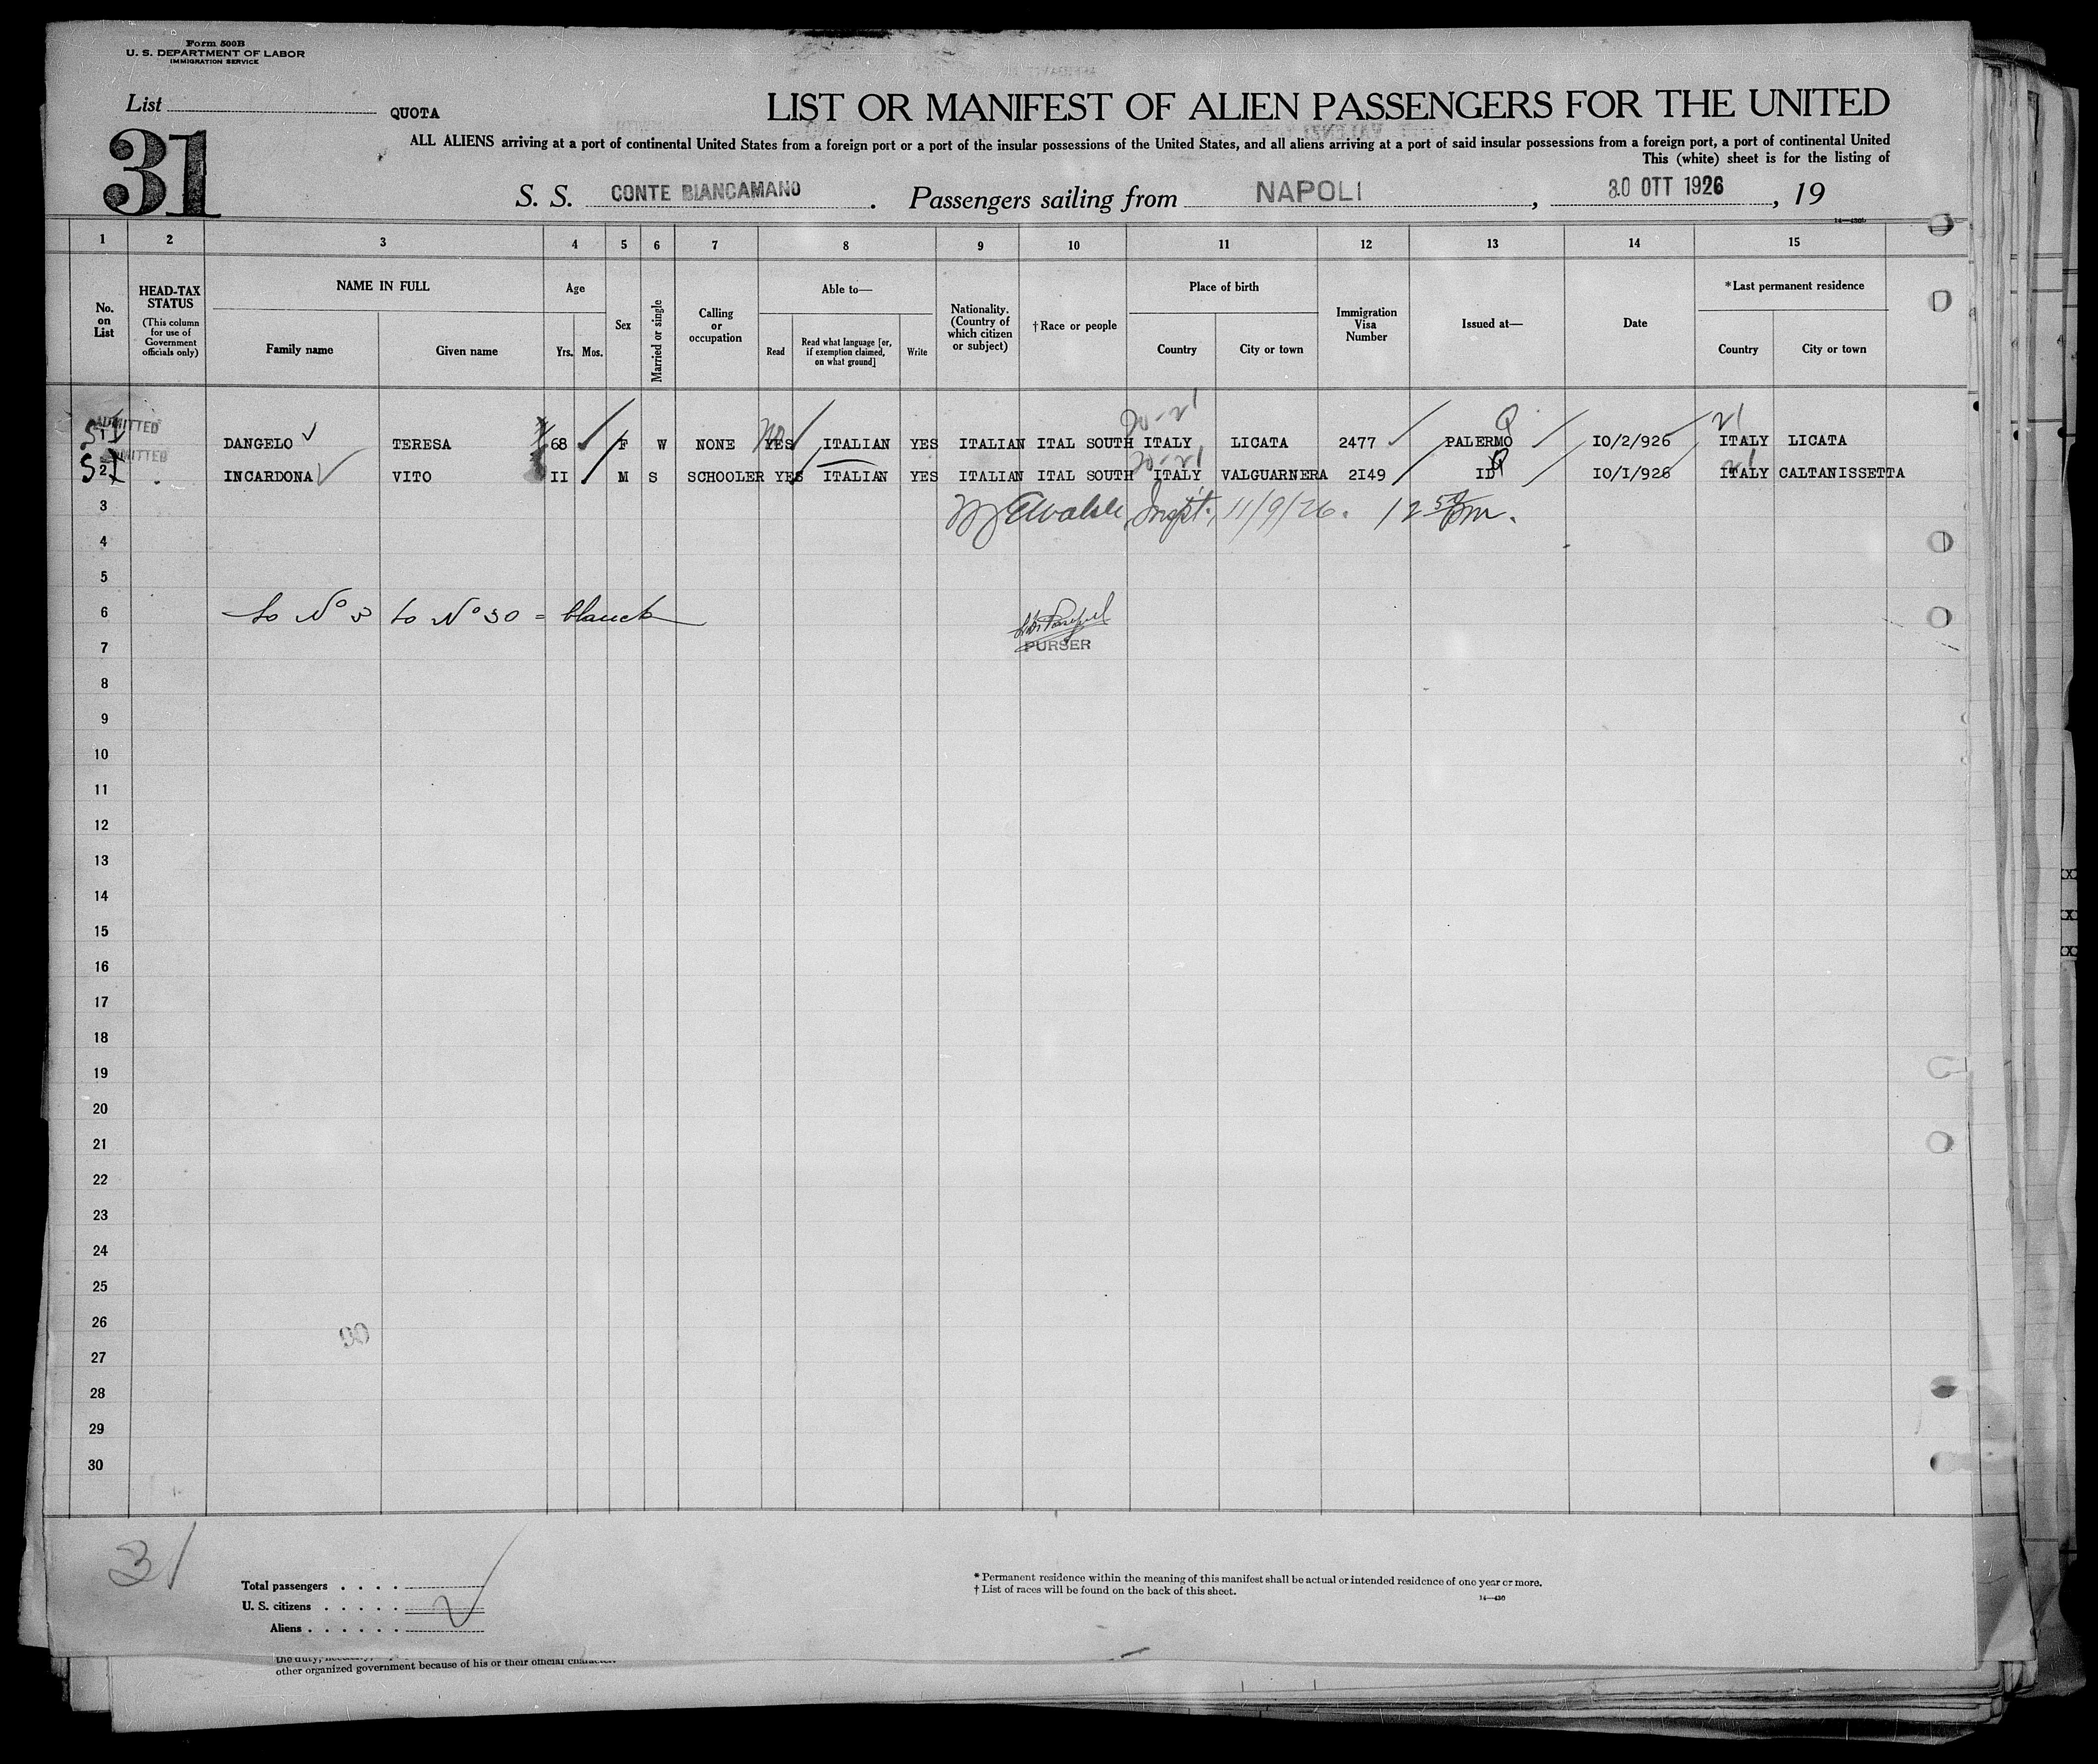 Form 500B
U. S. DEPARTMENT OF LABOR
IMMIGRATION SERVICE
List
QUOTA
31
LIST OR MANIFEST OF ALIEN PASSENGERS FOR THE UNITED
ALL ALIENS arriving at a port of continental United States from a foreign port or a port of the insular possessions of the United States, and all aliens arriving at a port of said insular possessions from a foreign port, a port of continental United
This (white) sheet is for the listing of
S. S. CONTE BIANCAMANO . Passengers sailing from NAPOLI , 30 OTT 1926 , 19
1 2 3 4 5 6 7 8 9 10 11 12 13 14 15
No. on List
HEAD-TAX STATUS
(This column for use of Government officials only)
NAME IN FULL
Family name Given name
Age
Yrs. Mos.
Sex
Married or single
Calling or occupation
Able to—
Read
Read what language [or, if exemption claimed, on what ground]
Write
Nationality. (Country of which citizen or subject)
†Race or people
Place of birth
Country City or town
Immigration Visa Number
Issued at—
Date
*Last permanent residence
Country City or town
ADMITTED
20-21 Q 21
1 DANGELO TERESA 68 F W NONE no YES ITALIAN YES ITALIAN ITAL SOUTH ITALY LICATA 2477 PALERMO IO/2/926 ITALY LICATA
ADMITTED
20-21 Q 21
2 INCARDONA VITO II M S SCHOOLER YES ITALIAN YES ITALIAN ITAL SOUTH ITALY VALGUARNERA 2I49 ID IO/I/926 ITALY CALTANISSETTA
3 Inspt. 11/9/26. 12 pm.
4
5
6 to No 3 to No 30 = blanck
PURSER
7
8
9
10
11
12
13
14
15
16
17
18
19
20
21
22
23
24
25
26
27
28
29
30
31
Total passengers
U. S. citizens
Aliens
* Permanent residence within the meaning of this manifest shall be actual or intended residence of one year or more.
† List of races will be found on the back of this sheet.
14—430
other organized government because of his or their official